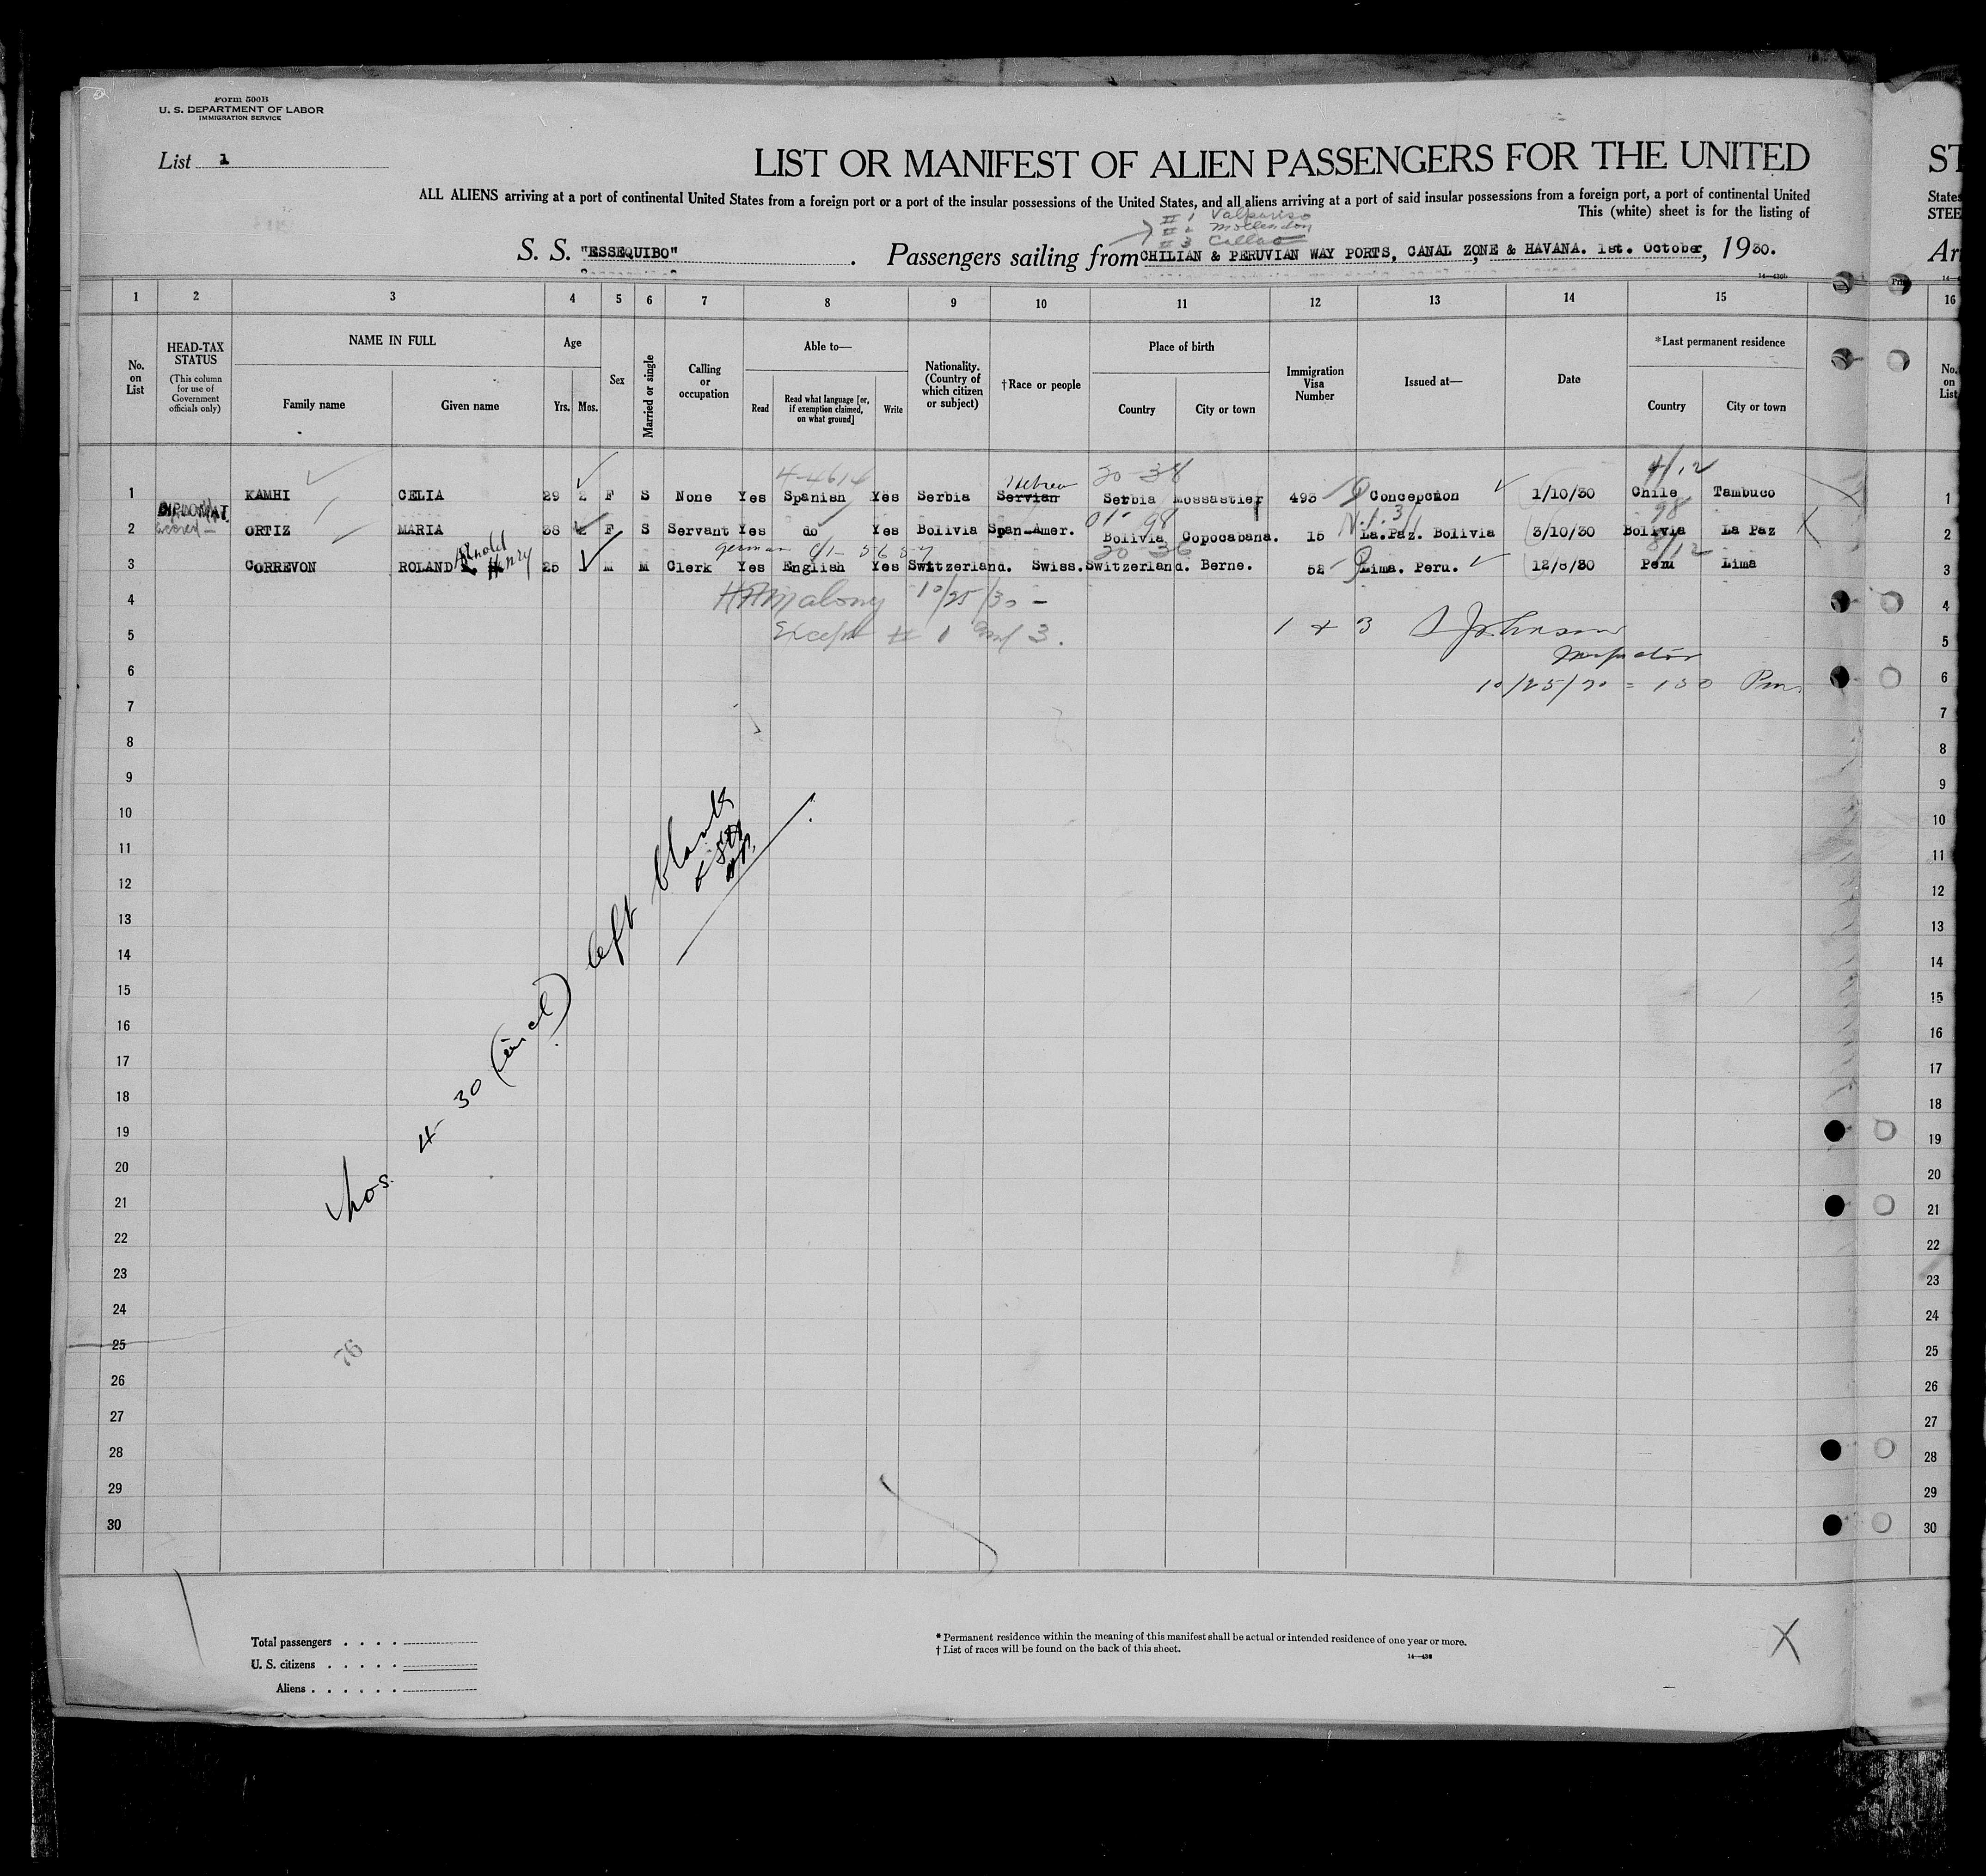 Form 500B
U. S. DEPARTMENT OF LABOR
IMMIGRATION SERVICE
List 1
LIST OR MANIFEST OF ALIEN PASSENGERS FOR THE UNITED
ST
ALL ALIENS arriving at a port of continental United States from a foreign port or a port of the insular possessions of the United States, and all aliens arriving at a port of said insular possessions from a foreign port, a port of continental United
States
This (white) sheet is for the listing of
STEE
# 1 Valpariso
# 2 Mollendon
# 3 Callao
S. S. "ESSEQUIBO" . Passengers sailing from CHILIAN & PERUVIAN WAY PORTS, CANAL ZONE & HAVANA. 1st. October, 1930.
Arr
1 2 3 4 5 6 7 8 9 10 11 12 13 14 15 16
No. on List
HEAD-TAX STATUS
(This column for use of Government officials only)
NAME IN FULL
Family name
Given name
Age
Yrs. Mos.
Sex
Married or single
Calling or occupation
Able to—
Read
Read what language [or, if exemption claimed, on what ground]
Write
Nationality. (Country of which citizen or subject)
†Race or people
Place of birth
Country
City or town
Immigration Visa Number
Issued at—
Date
*Last permanent residence
Country
City or town
No. on List
4-4614 Hebrew 20-38 4/12
1 KAMHI CELIA 29 2 F S None Yes Spanish Yes Serbia Servian Serbia Mossastier 493 Concepcion 1/10/30 Chile Tambuco 1
DIPLOMAT
98
2 ORTIZ MARIA 38 F S Servant Yes do Yes Bolivia Span-Amer. Bolivia Copocabana. 15 La.Paz. Bolivia 3/10/30 Bolivia La Paz 2
Arnold Henry German 20-36 8/12
3 CORREVON ROLAND 25 M M Clerk Yes English Yes Switzerland. Swiss. Switzerland. Berne. 52 Lima. Peru. 12/8/30 Peru Lima 3
4 HAMalony 10/25/30 - 4
5 Except # 1 and 3. 1 & 3 S Johnson 5
Inspector
6 10/25/30 = 130 Pm. 6
7 7
8 8
9 9
10 10
11 11
12 12
13 13
14 14
15 15
16 16
17 17
18 18
19 19
20 20
21 21
22 22
23 23
24 24
25 25
26 26
27 27
28 28
29 29
30 30
Nos. 4 - 30 (incl) left blank
76
Total passengers . . . .
U. S. citizens . . . . .
Aliens . . . . . .
* Permanent residence within the meaning of this manifest shall be actual or intended residence of one year or more.
† List of races will be found on the back of this sheet.
14—438
X